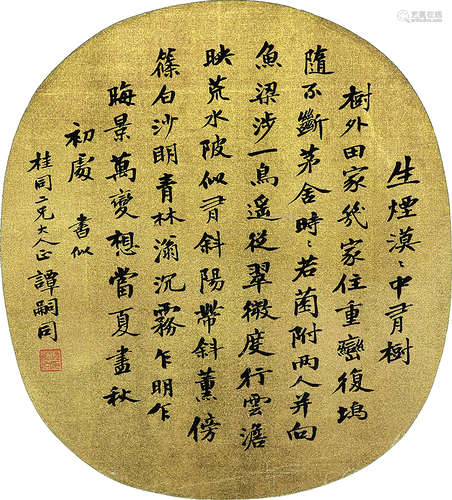 生煙漠〻中有樹
樹外田家幾家住重巒復塢
隨不斷茅舍時〻若菌附兩人并向
魚梁涉一鳥遙從翠微度行雲澹
映荒水陂似有斜陽帶斜薰傍
篠白沙明青林滃沉霧乍明乍
晦景萬變想當夏盡秋
初處 書似
桂同二兄大人正 譚嗣同